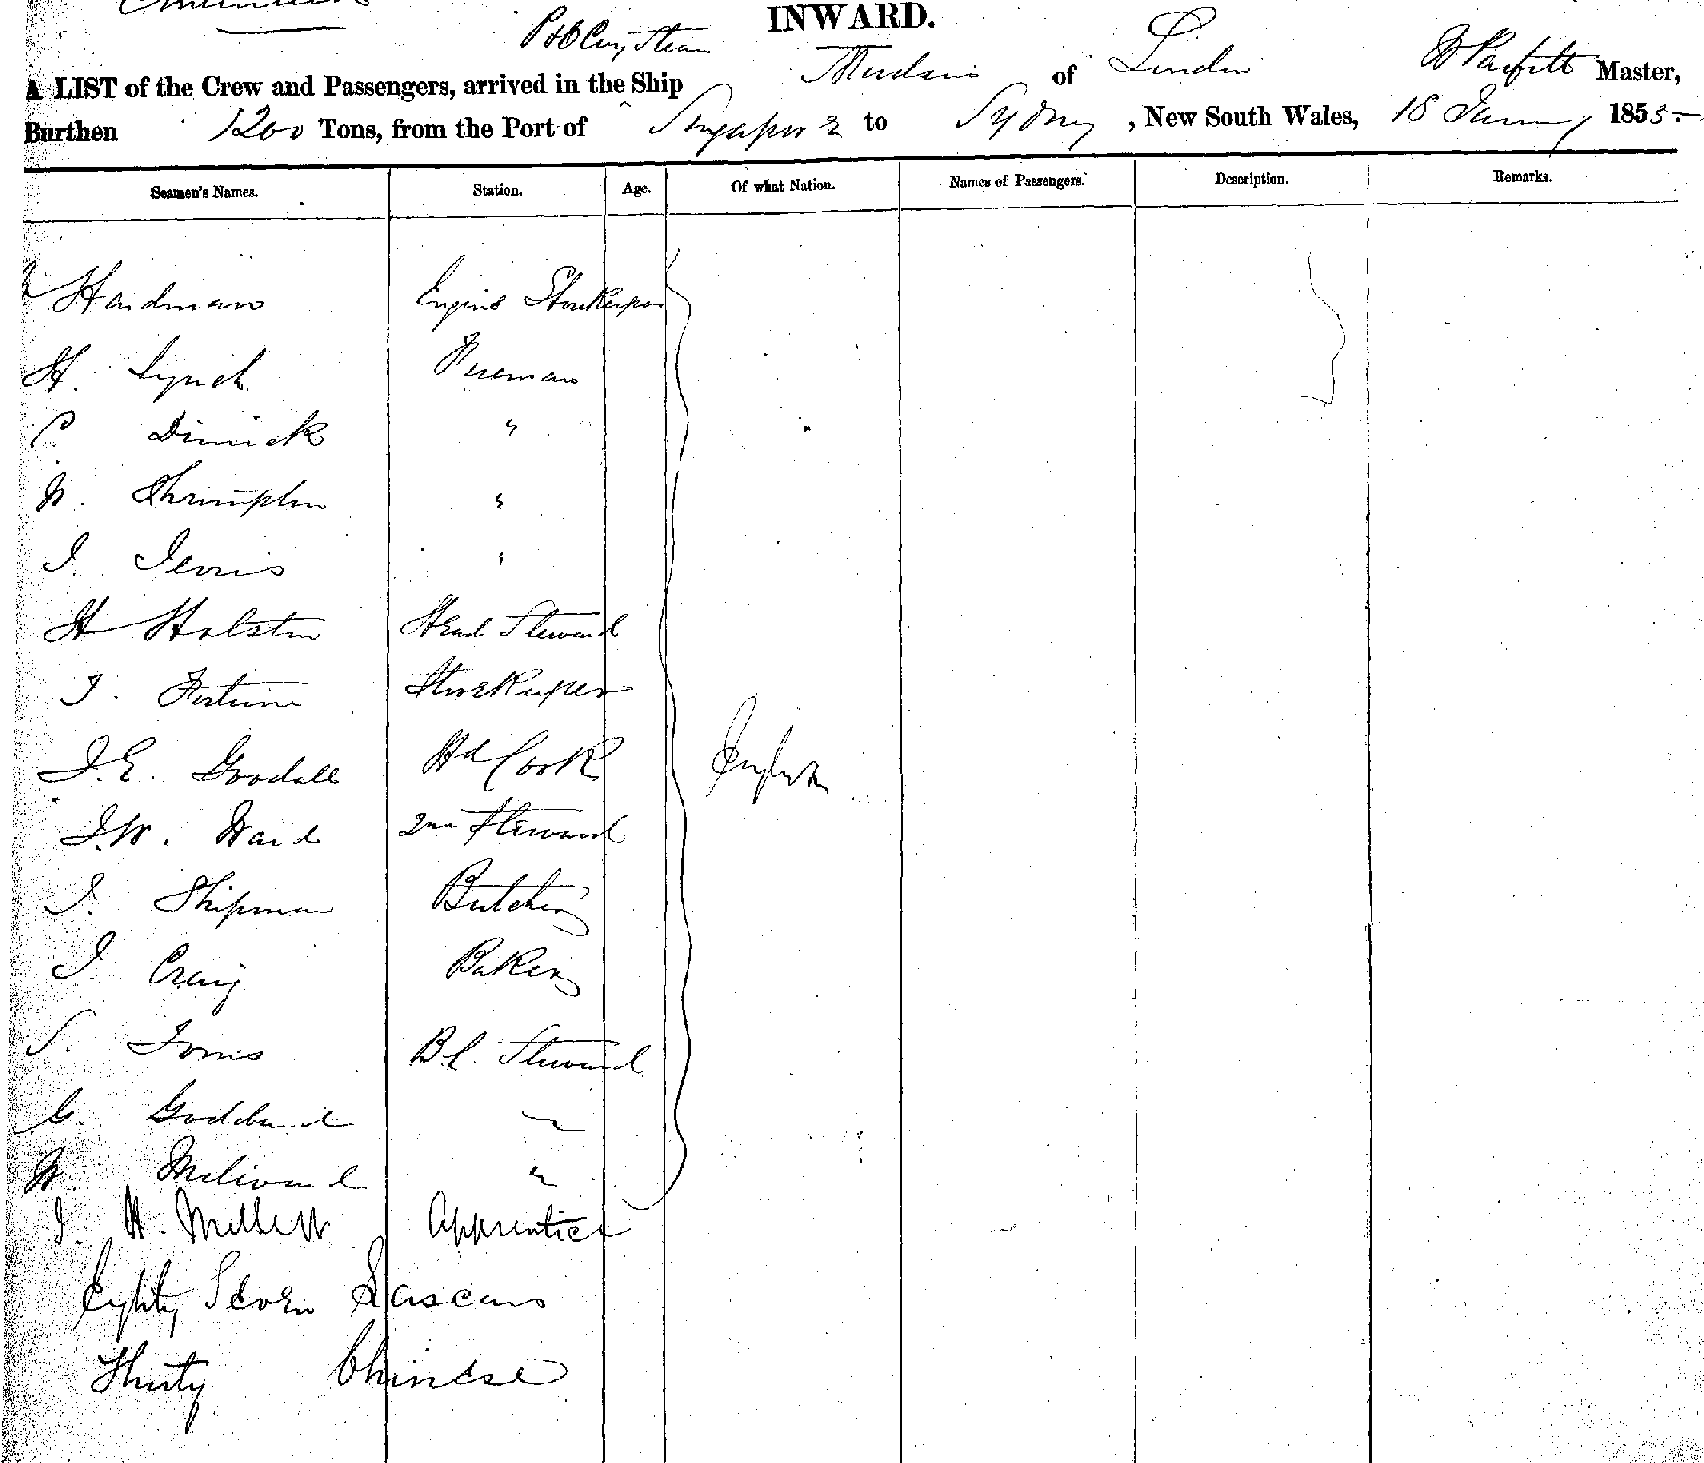 INWARD.
P & O Coy Steam
A LIST of the Crew and Passengers, arrived in the Ship Madras of London W Parfitt Master,
Burthen 1200 Tons, from the Port of Singapore to Sydney, New South Wales, 18 January 1853
Seamen's Names. Station. Age. Of what Nation. Names of Passengers. Description. Remarks.
Hardman Engine Storekeeper
H. Lynch Fireman
C. Dimick "
W. Shrimpton "
J. Jervis "
H Holstin Head Steward
J. Fortune Storekeeper
J.E. Goodall Hd Cook English
J.W. Ward 2nd Steward
J. Shipman Butcher
J Craig Baker
S. Toms B.C. Steward
G. Goddard "
W. Milward "
J. H. Millett Apprentice
Eighty Seven Lascars
Thirty Chinese